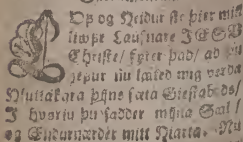 Op og Neidur sie þier mitt
liwfe Lausnare JESV
Christe/ fyrer þad/ ad þu
hefur nu læted mig verda
Nuitakara þijns sæta Giestabods/
I hvoriu þu sadder mijna Saal/
og Endurnærder mitt Hiarta. Nu